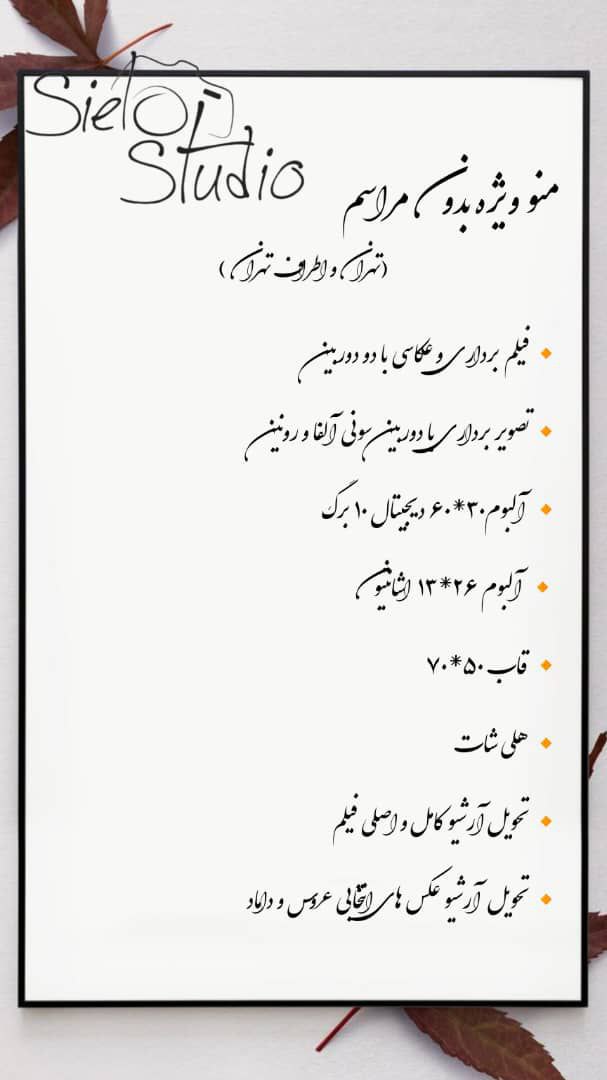 Sielo
Studio
منو ویژه بدون مراسم
(تهران و اطراف تهران)
فیلم برداری و عکاسی با دو دوربین
تصویر برداری با دوربین سونی آلفا و رونین
آلبوم ۳۰*۶۰ دیجیتال ۱۰ برگ
آلبوم ۲۶*۱۳ اشانتیون
قاب ۵۰*۷۰
هلی شات
تحویل آرشیو کامل و اصلی فیلم
تحویل آرشیو عکس های انتخابی عروس و داماد